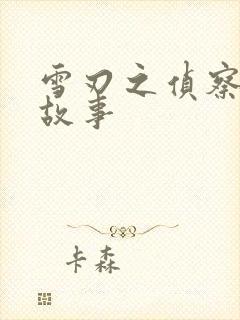 雪刃之偵察
故事
卡森